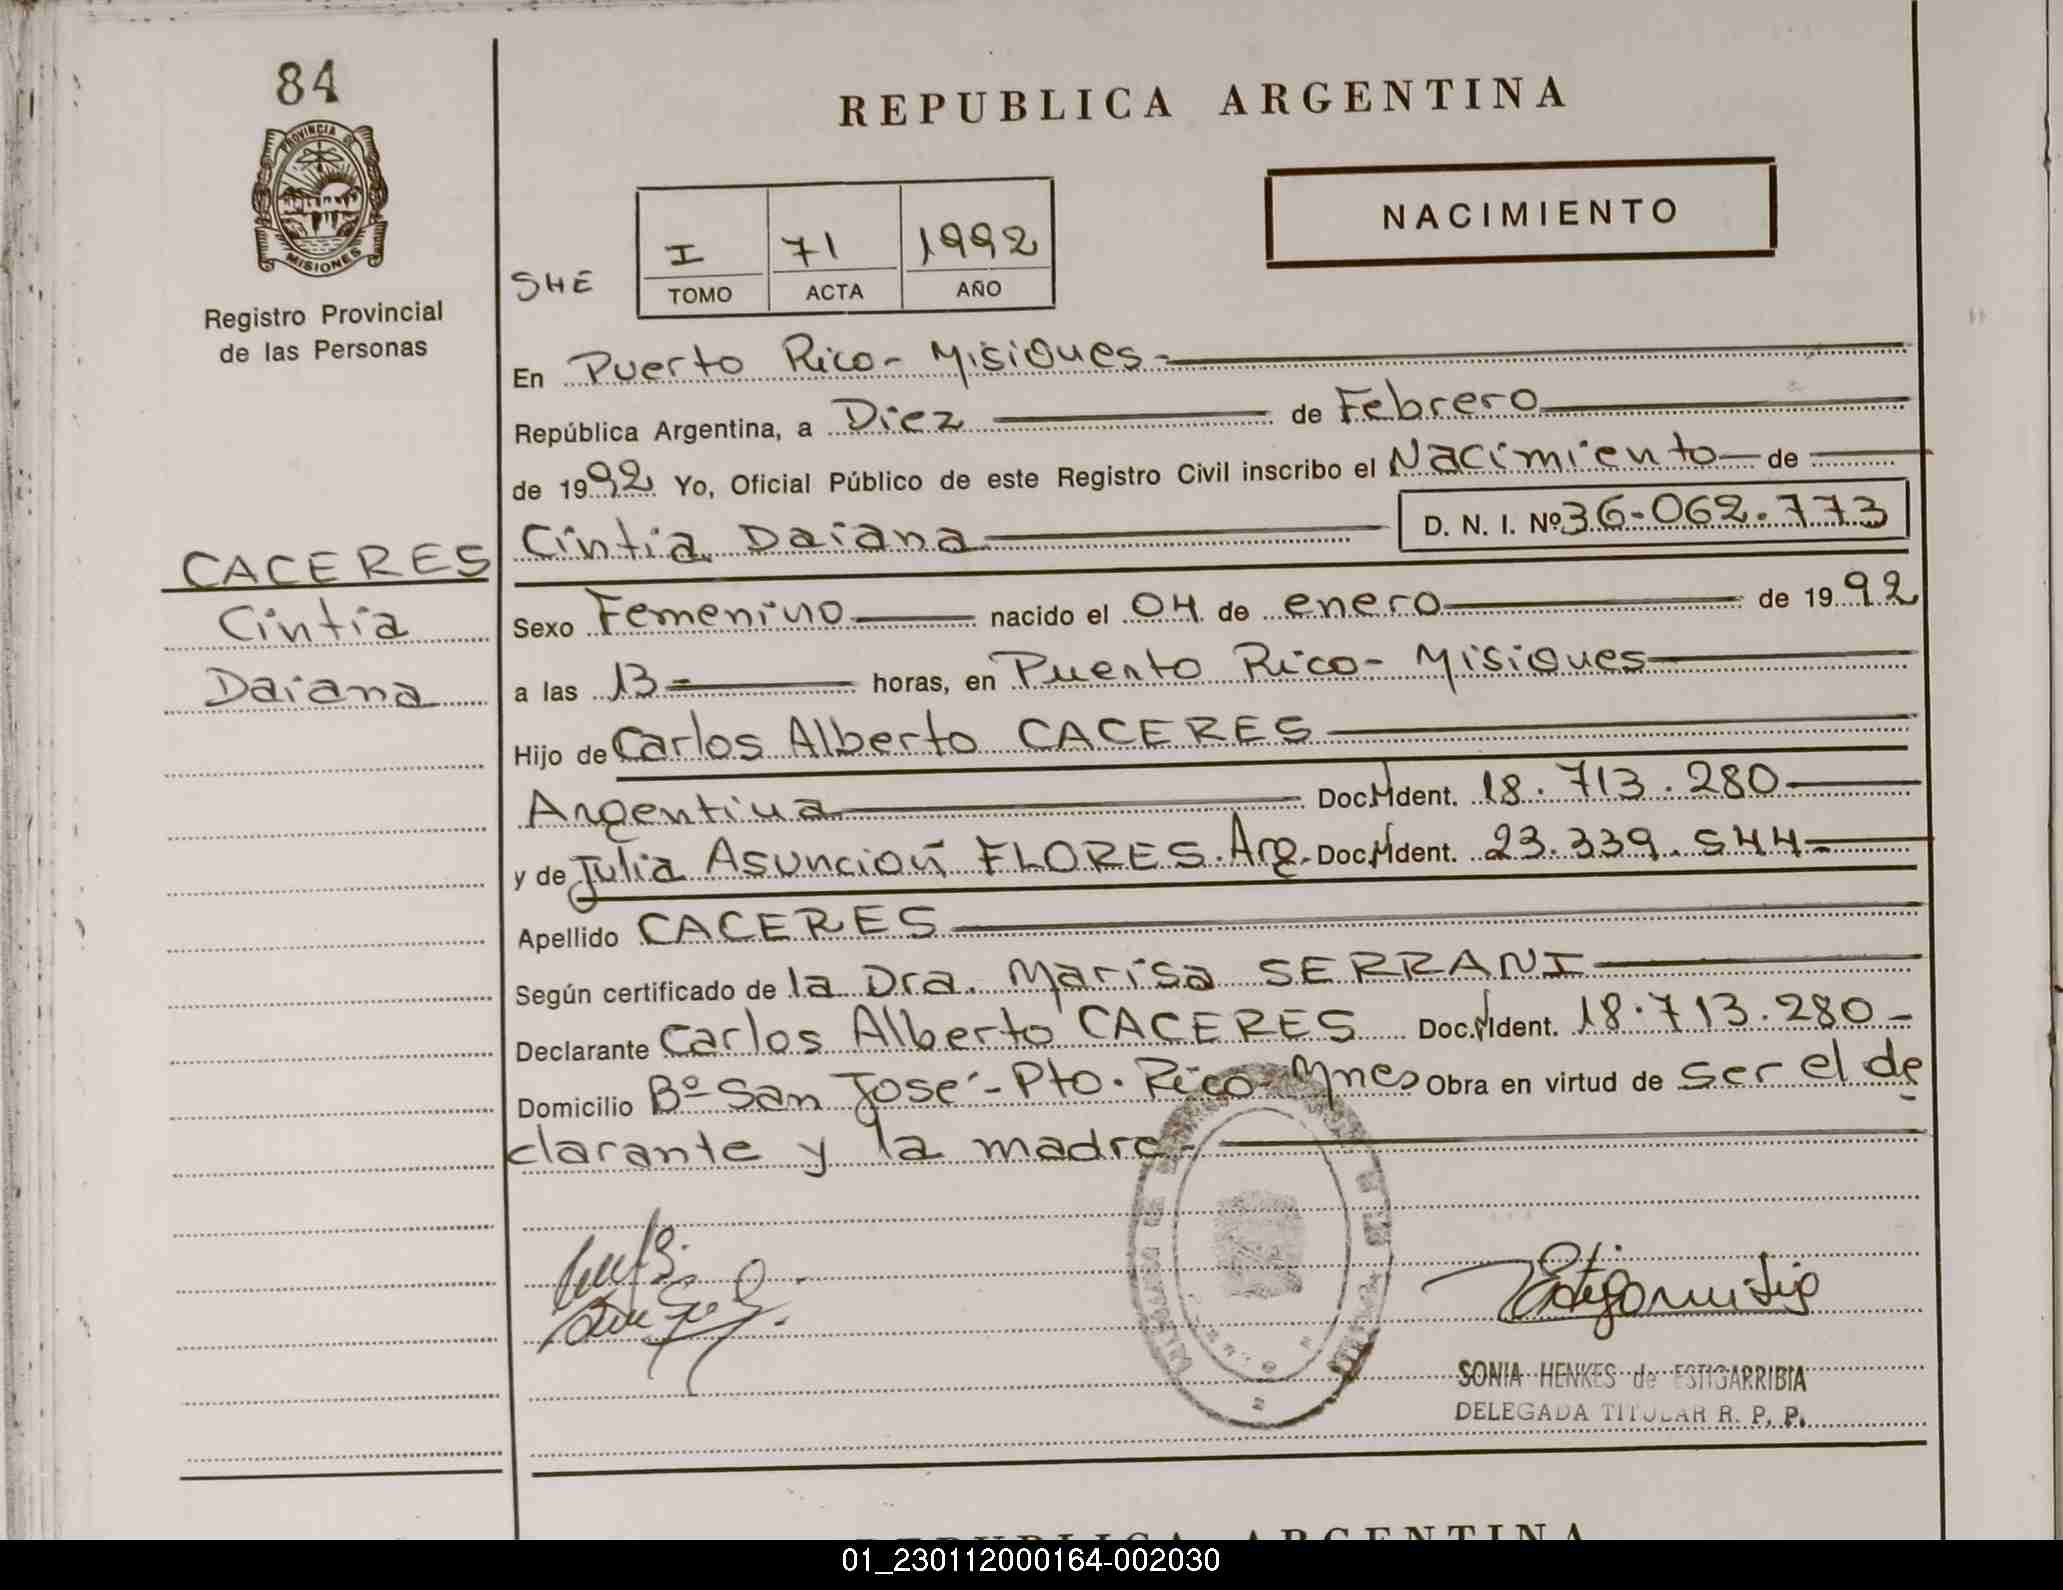 84
PROVINCIA DE
MISIONES
Registro Provincial
de las Personas
CACERES
Cintia
Daiana
REPUBLICA ARGENTINA
NACIMIENTO
SHE
I 71 1992
TOMO ACTA AÑO
En Puerto Rico - Misiones -
República Argentina, a Diez de Febrero
de 1992 Yo, Oficial Público de este Registro Civil inscribo el Nacimiento de
Cintia Daiana D. N. I. Nº 36.062.773
Sexo Femenino nacido el 04 de enero de 1992
a las 13 - horas, en Puerto Rico - Misiones
Hijo de Carlos Alberto CACERES
Argentina Doc. N Ident. 18.713.280
y de Julia Asunción FLORES. Arg. Doc. N Ident. 23.339.544 -
Apellido CACERES
Según certificado de la Dra. Marisa SERRANI
Declarante Carlos Alberto CACERES Doc. N Ident. 18.713.280 -
Domicilio Bº San José - Pto. Rico - Mnes Obra en virtud de ser el de
clarante y la madre -
SONIA HENKES de ESTIGARRIBIA
DELEGADA TITULAR R. P. P.
REPUBLICA ARGENTINA
01_230112000164-002030